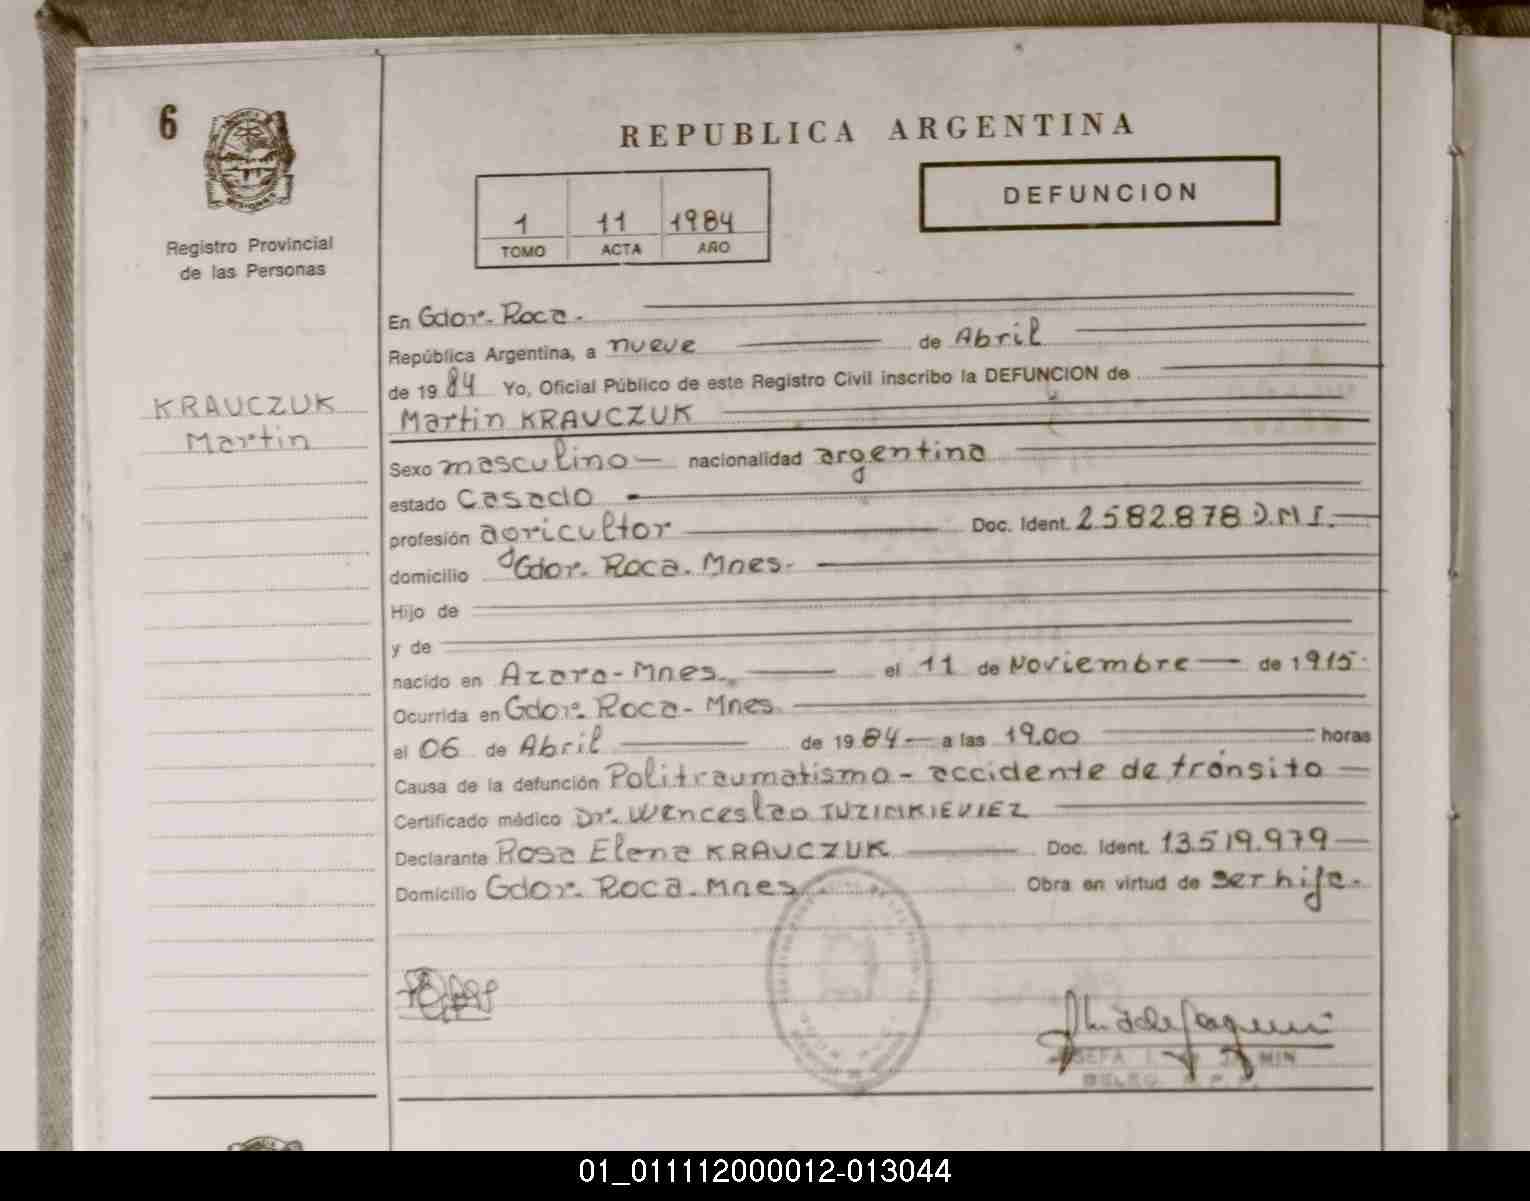 6
REPUBLICA ARGENTINA
DEFUNCION
1 11 1984
TOMO ACTA AÑO
Registro Provincial
de las Personas
KRAUCZUK
Martin
En Gdor. Roca.
República Argentina, a nueve de Abril
de 1984 Yo, Oficial Público de este Registro Civil inscribo la DEFUNCION de
Martin KRAUCZUK
Sexo masculino nacionalidad argentina
estado Casado
profesión agricultor Doc. Ident. 2.582.878 D.N.I.
domicilio Gdor. Roca. Mnes.
Hijo de
y de
nacido en Azara - Mnes. el 11 de Noviembre de 1915.
Ocurrida en Gdor. Roca - Mnes.
el 06 de Abril de 1984 a las 19.00 horas
Causa de la defunción Politraumatismo - accidente de tránsito
Certificado médico Dr. Wenceslao
Declarante Rosa Elena KRAUCZUK Doc. Ident. 13.519.979
Domicilio Gdor. Roca. Mnes Obra en virtud de ser hija.
01_011112000012-013044